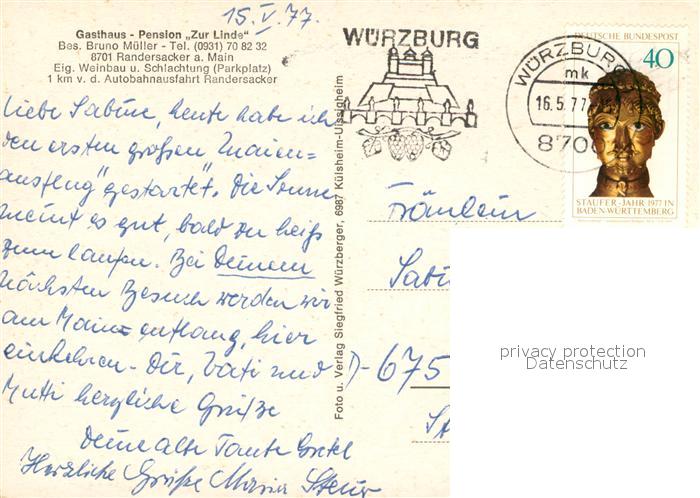 15.V.77.
Gasthaus - Pension „Zur Linde"
Bes. Bruno Müller - Tel. (0931) 70 82 32
8701 Randersacker a. Main
Eig. Weinbau u. Schlachtung (Parkplatz)
1 km v. d. Autobahnausfahrt Randersacker
Liebe Sabine, heute habe ich
den ersten großen Maien=
ausflug "gestartet". Die Sonne
meint es gut, bald zu heiß
zum laufen. Bei Deinem
nächsten Besuch werden wir
am Main entlang, hier
einkehren. Dir, Vati und
Mutti herzliche Grüße
Deine alte Tante Gretel
Herzliche Grüße Maria
Foto u. Verlag Siegfried Würzberger, 6987 Külsheim-Uissigheim
WÜRZBURG
WÜRZBURG
mk
16.5.77
8700
DEUTSCHE BUNDESPOST
40
STAUFER-JAHR 1977 IN
BADEN-WÜRTTEMBERG
Fräulein
Sabi
D-675
privacy protection
Datenschutz